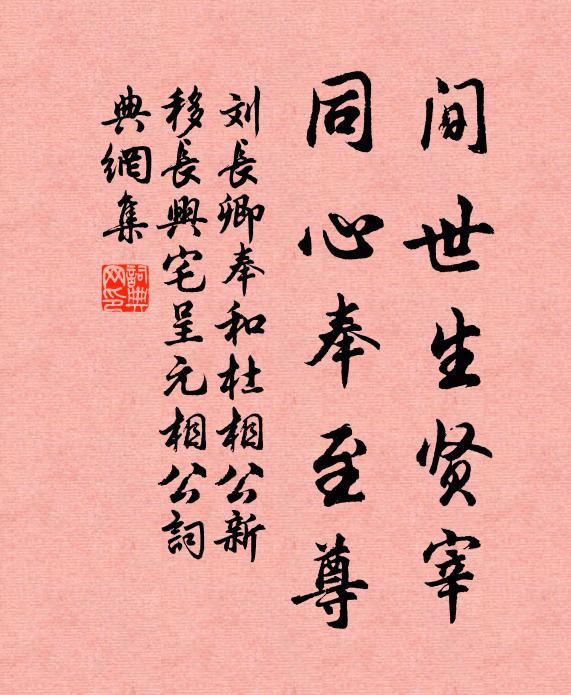 间世生贤宰
同心奉至尊
刘长卿奉和杜相公新
移長興宅呈元相公詞
典網集
詞典网印